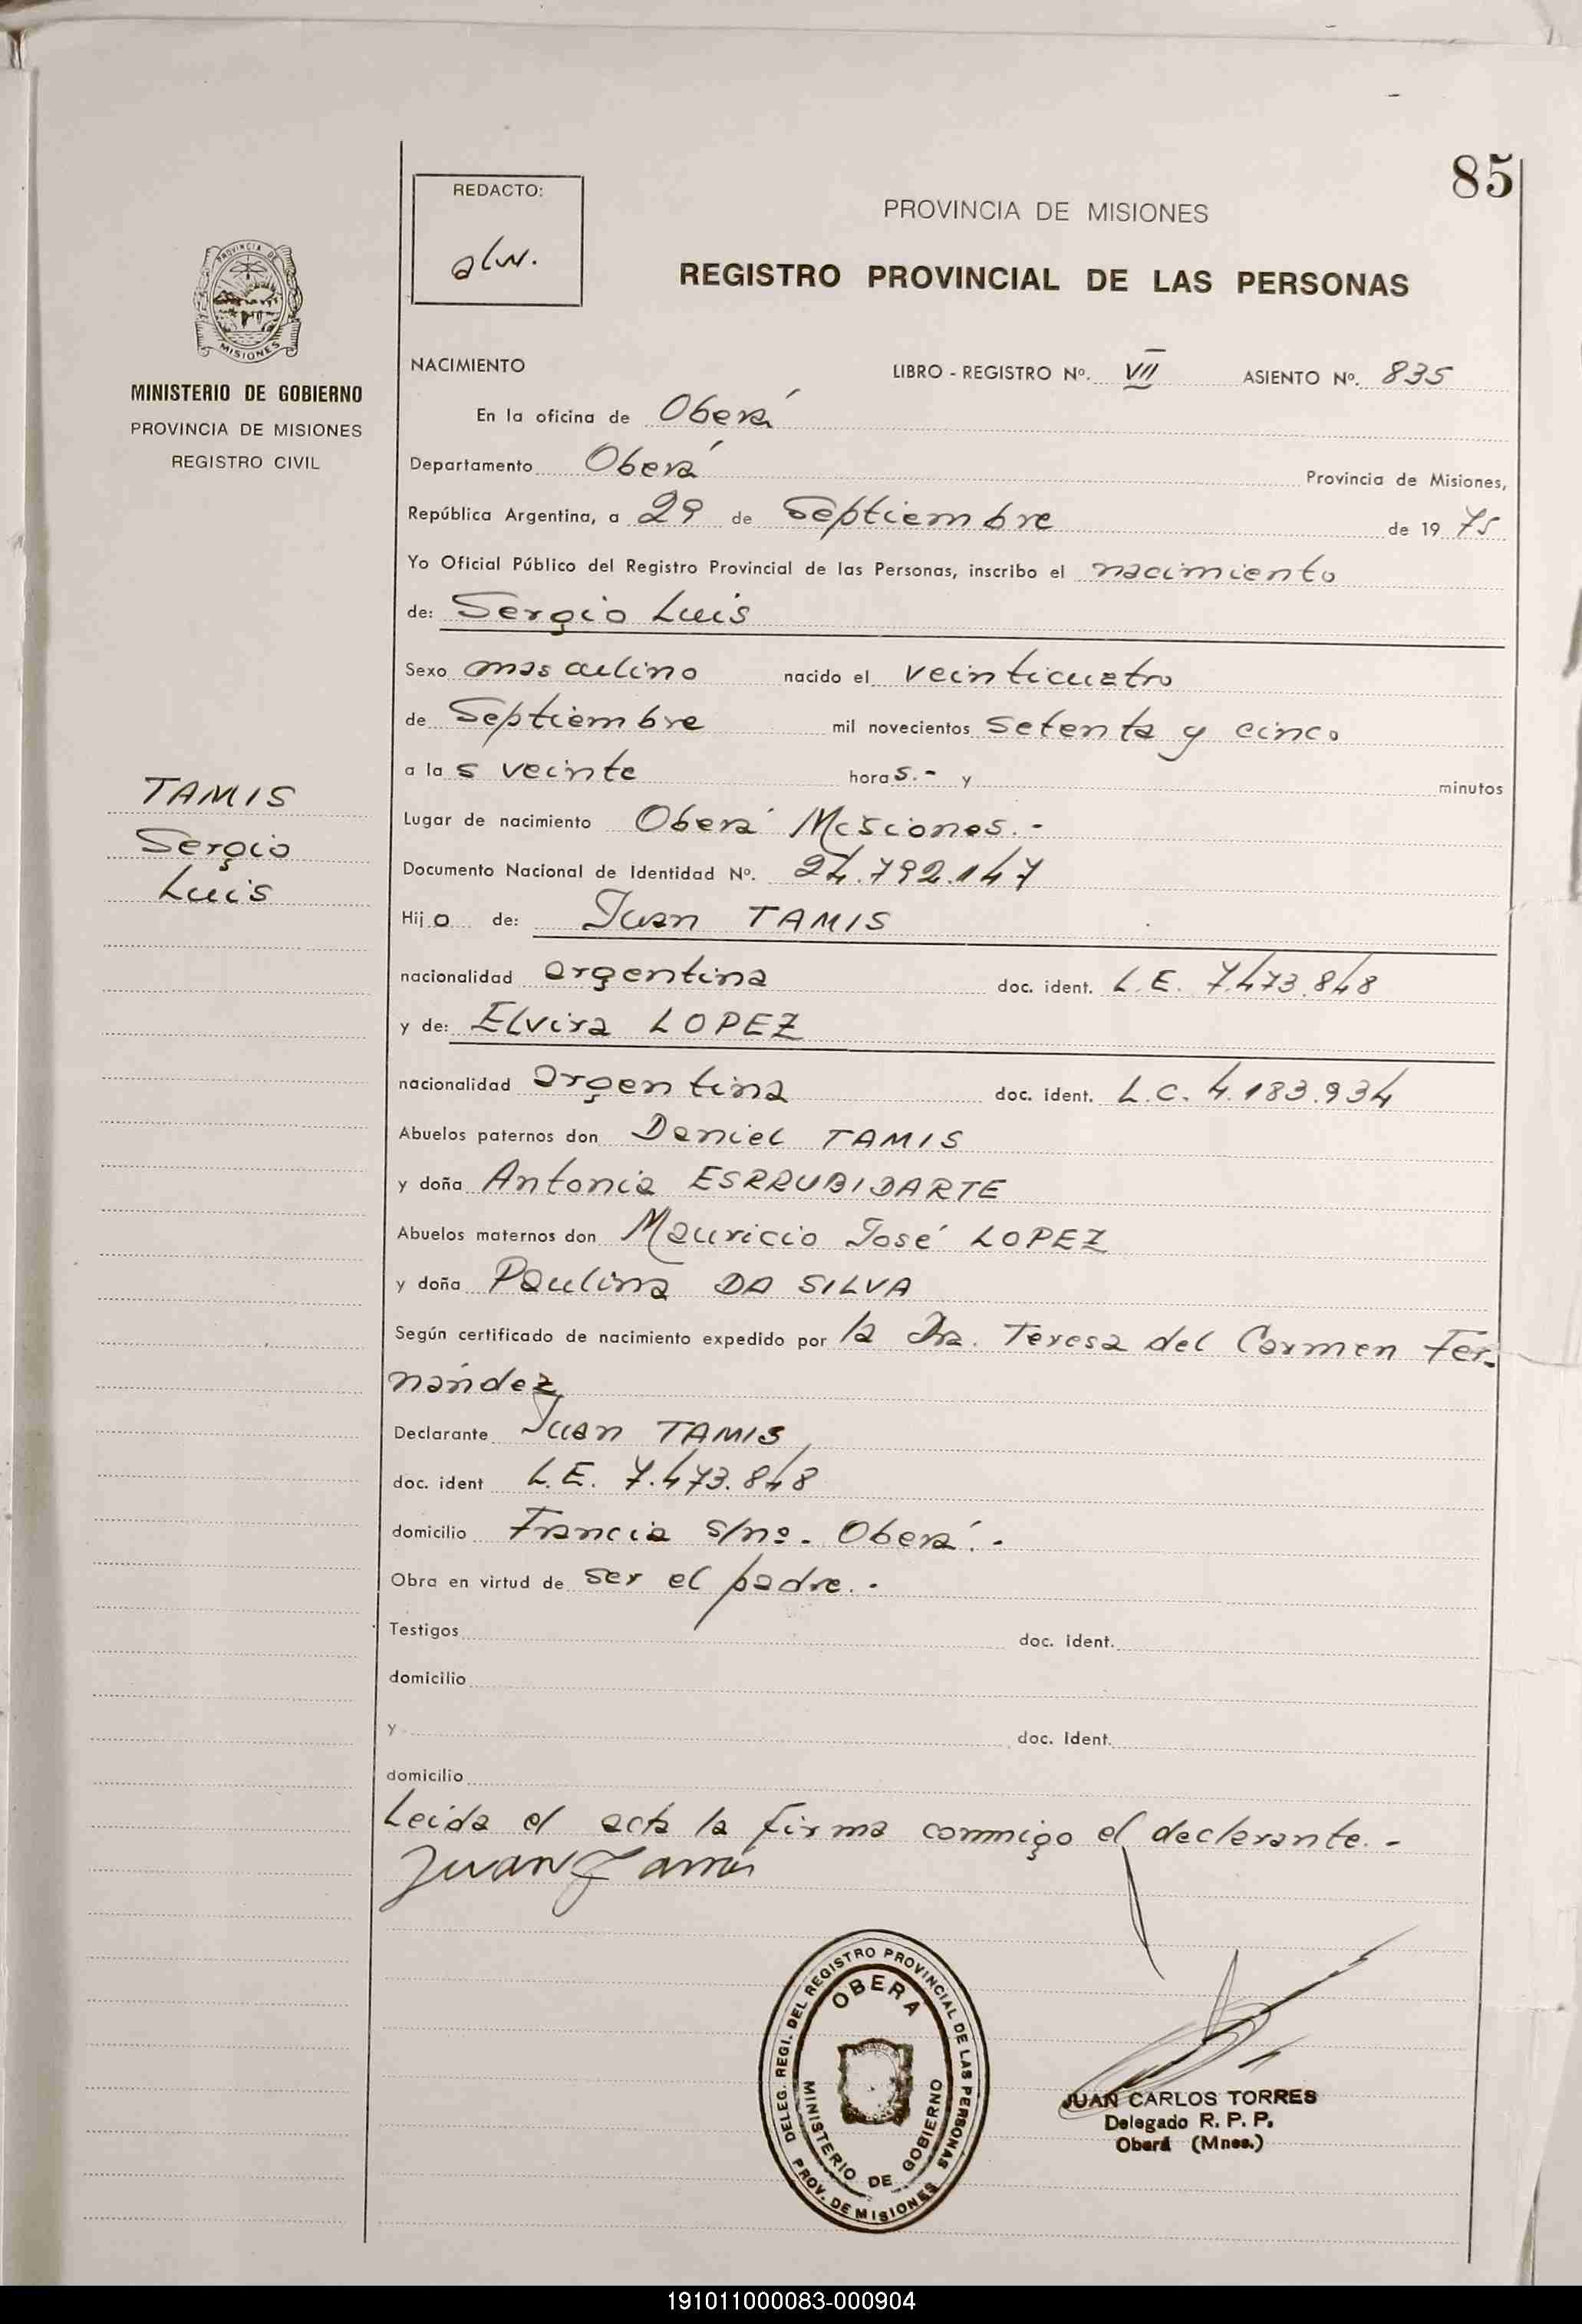 85
REDACTO:
alw.
PROVINCIA DE MISIONES
REGISTRO PROVINCIAL DE LAS PERSONAS
PROVINCIA DE
MISIONES
MINISTERIO DE GOBIERNO
PROVINCIA DE MISIONES
REGISTRO CIVIL
TAMIS
Sergio
Luis
NACIMIENTO LIBRO - REGISTRO Nº. VII ASIENTO Nº. 835
En la oficina de Oberá
Departamento Oberá Provincia de Misiones,
República Argentina, a 29 de Septiembre de 19 75
Yo Oficial Público del Registro Provincial de las Personas, inscribo el nacimiento
de: Sergio Luis
Sexo masculino nacido el veinticuatro
de Septiembre mil novecientos setenta y cinco
a las veinte horas.- y minutos
Lugar de nacimiento Oberá Misiones.-
Documento Nacional de Identidad Nº. 24.792.147
Hijo de: Juan TAMIS
nacionalidad argentina doc. ident. L.E. 7.473.848
y de: Elvira LOPEZ
nacionalidad argentina doc. ident. L.C. 4.183.934
Abuelos paternos don Daniel TAMIS
y doña Antonia ESRRUBIDARTE
Abuelos maternos don Mauricio José LOPEZ
y doña Paulina DA SILVA
Según certificado de nacimiento expedido por la Dra. Teresa del Carmen Fer-
nández
Declarante Juan TAMIS
doc. ident L.E. 7.473.848
domicilio Francia s/nº. Oberá.-
Obra en virtud de ser el padre.-
Testigos doc. ident.
domicilio
y doc. Ident.
domicilio
Leida el acta la firma conmigo el declarante.-
Juan Tamis
DELEG. REGI. DEL REGISTRO PROVINCIAL DE LAS PERSONAS
OBERA
MINISTERIO DE GOBIERNO
PROV. DE MISIONES
JUAN CARLOS TORRES
Delegado R. P. P.
Oberá (Mnes.)
191011000083-000904